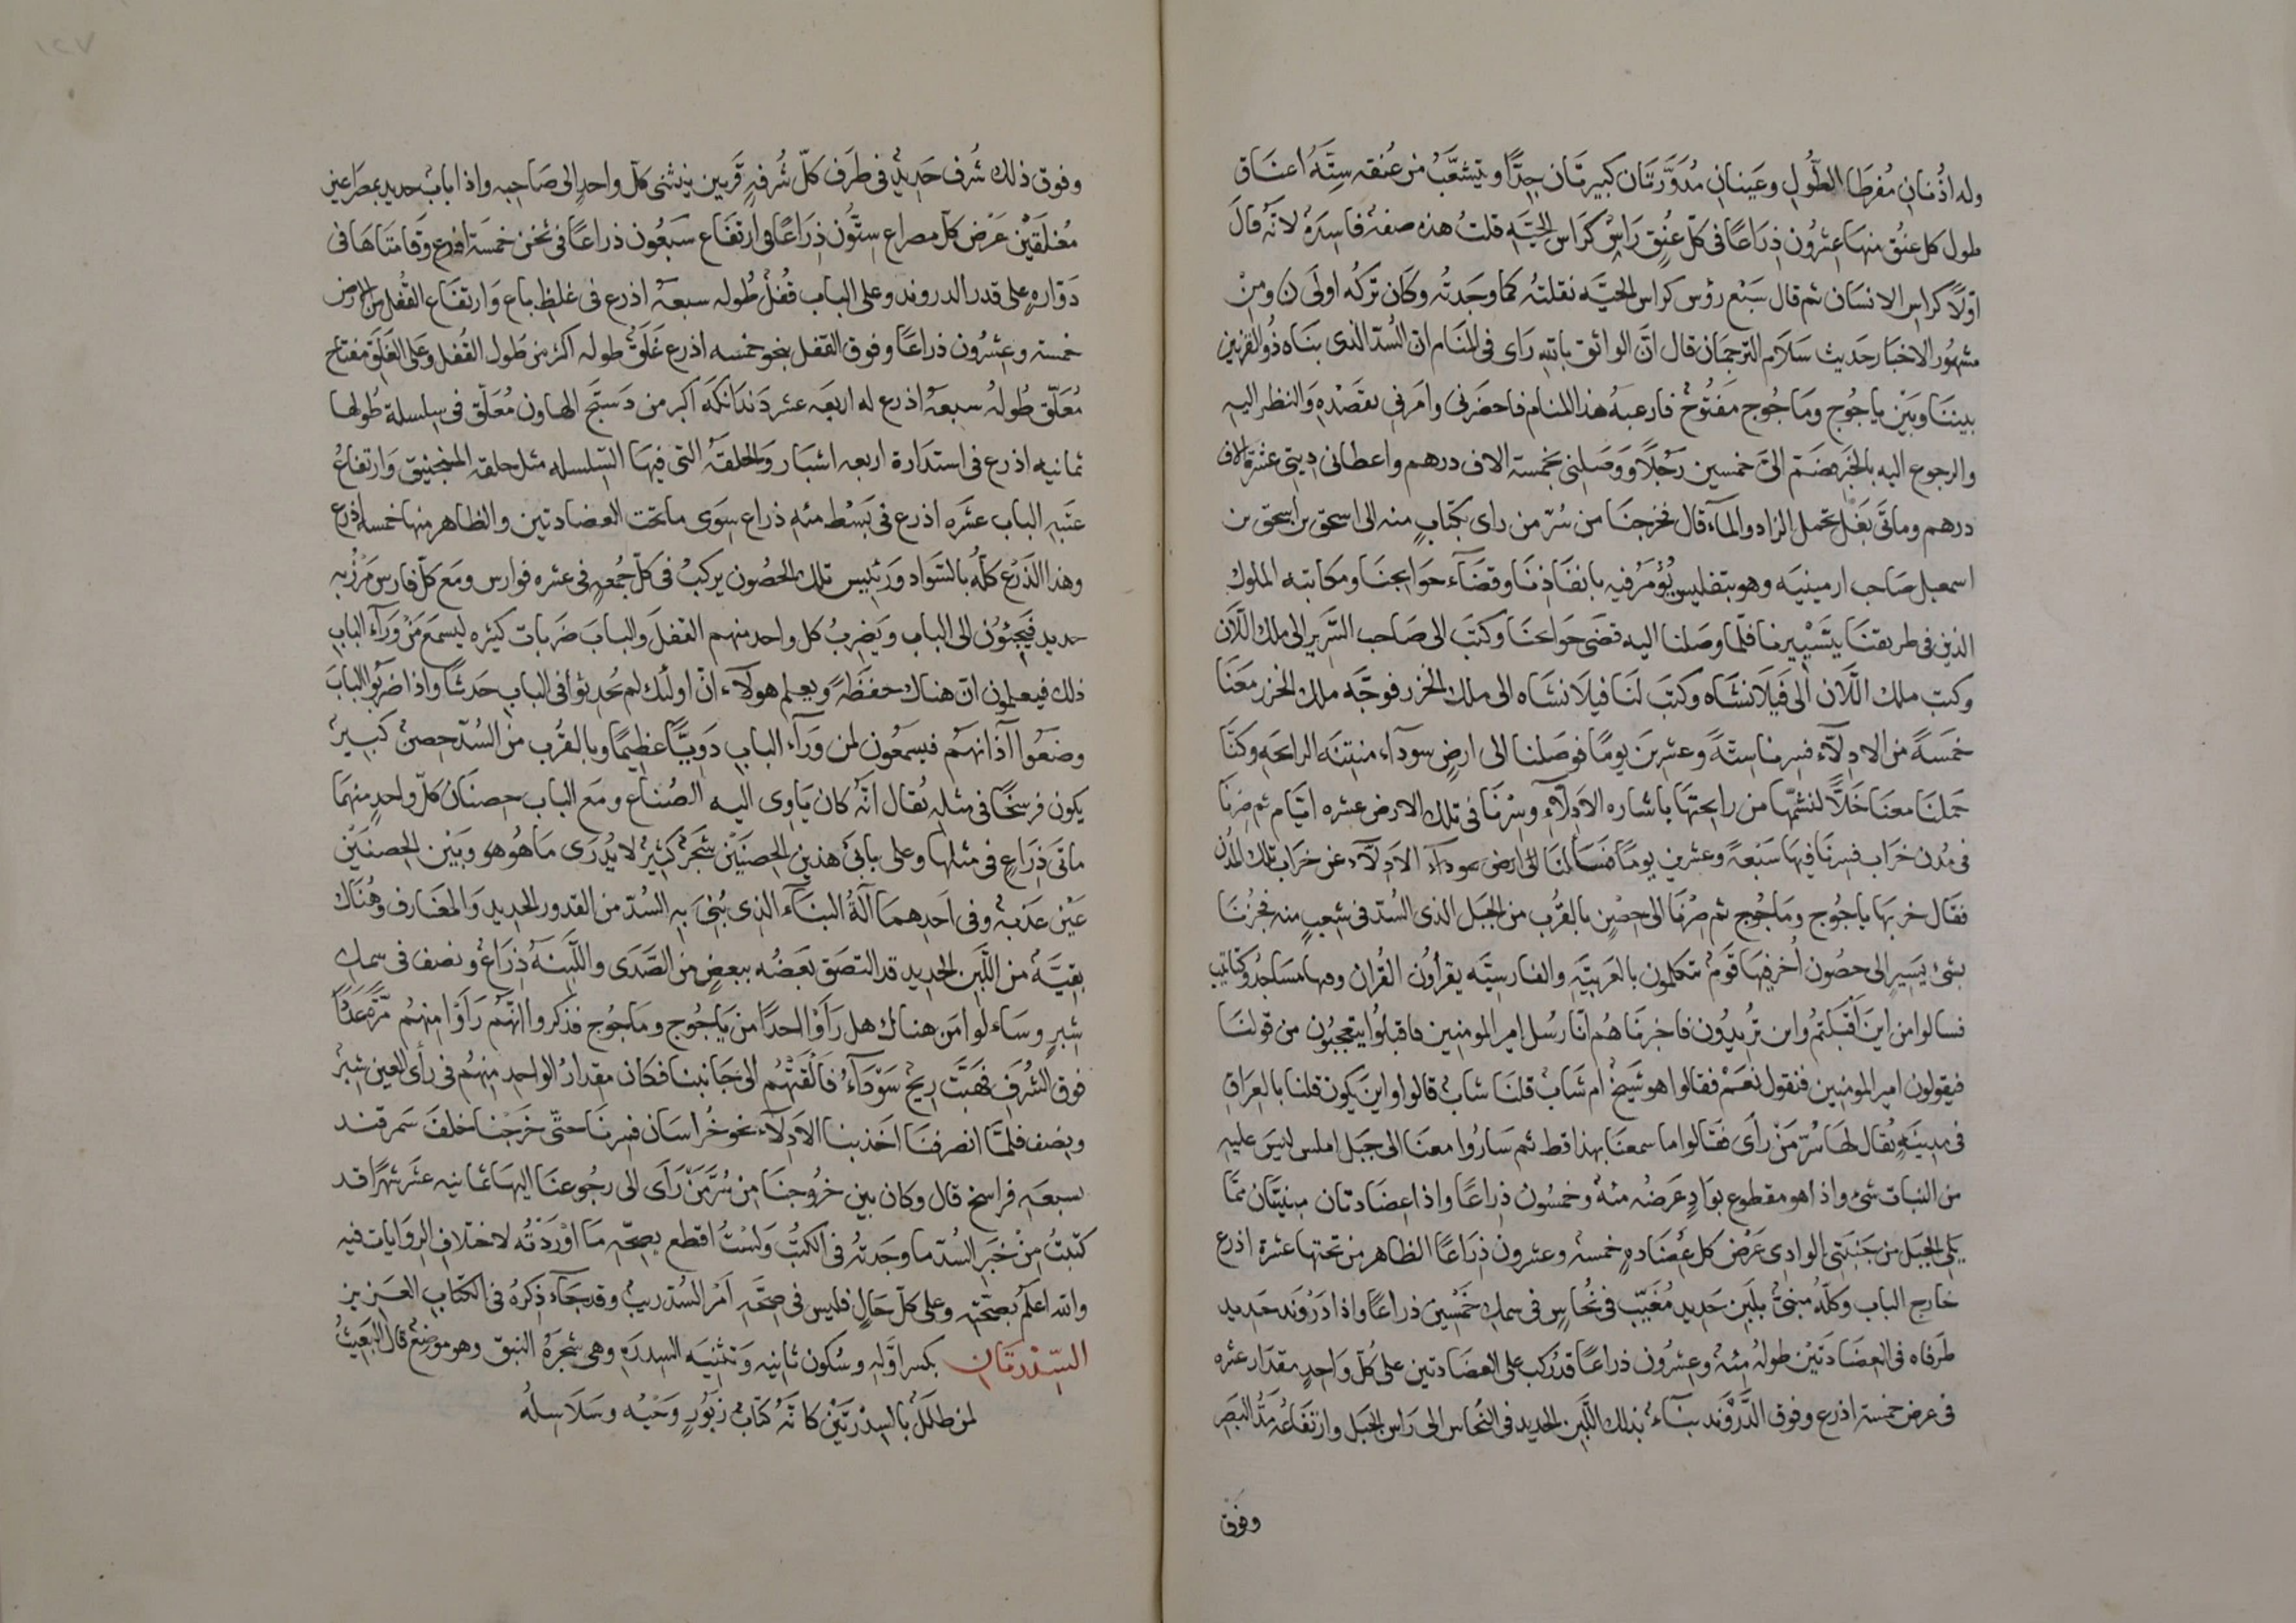 وله اذُنانِ مُفرطَا الطُولِ وعَينانِ مُدَوَّرَتَان كَبيرتَان جِدًّا ويَتشعَّبُ من عُنقه سِتَةُ اعنَاق
طول كل عنُق منهَا عِشرُون ذِرَاعًا فى كلّ عنُقٍ رَاسٌ كرَاس الحَيَّه قلتُ هذه صفةٌ فاسِدَةٌ لانَّه قالَ
اوّلاً كراس الانسَان ثم قال سَبْع رؤس كراس الحيَّه نقلتهُ كما وجَدتُه وكَان تركُه اولَى ن ومِنْ
مشهُور الاخبَار حَديث سَلَام الترجمَان قال انَّ الواثق بالله رَاى فى المنَام ان السُدّ الذى بنَاه ذُو القرنين
بيننَا وبَيْن ياجُوج ومَاجُوج مَفتُوحٌ فارعبهُ هذا المنام فاحضَرنى وامَرنى بقصْدِهِ وَالنظر اليه
والرجوع اليه بالخبَر فضَمّ الىّ خمسين رَجُلاً وَوَصَلنى بخمسة الاف درهم واعطانى دِيتى عشرة الاف
درهم وماتَى بَغْل تحمل الزاد والمآء قال فخرجنَا من سُرّ من راى بكتابٍ منه الى اسحق بن اسحق بن
اسمعيل صَاحب ارمينيَه وهو بتفليس يُؤمَرُ فيه بانفَاذنَا وقضَآء حوَايجنَا ومكاتبه الملوك
الذين فى طريقنَا بتَسْييرنا فلّما وصَلنا اليه قضَى حوَايجنَا وكتَبَ الى صَاحب السَّرير الى ملك اللَّان
وكتب ملك اللَّان الى فَيلانشَاه وكتبَ لنَا فيلانشَاه الى ملك الخزر فوجَّه ملك الخزر معَنَا
خمسَةً من الادِلآء فسِرنا ستةً وعشرِينَ يومًا فوصَلنا الى ارضٍ سودآء منتِنَه الرايحَه وكنَّا
حمَلنَا معنَا خَلاًّ لنشُمّها من رايحتهَا باشاره الاَدِلآء وسِرْنَا فى تلك الارض عشره ايّام ثم صِرنَا
فى مُدن خرَاب فسِرنَا فيهَا سَبْعةً وعشرين يومًا فسَألنَا الادِلآء عن خرَاب تلك المدُن
فقال خربهَا ياجُوج ومَاجُوج ثم صِرْنَا الى حِصْنٍ بالقُرب من الجبَل الذى السُدّ فى شِعبٍ منه فجُزنَا
بشئ يَسِيرٍ الى حصُون اُخر فيهَا قومٌ يتكلمون بالعَربيَّه والفارسيَّه يقرأوُن القُران وفيها مسَاجدُ وكتَاتيب
فسالوا من اينَ اَقبَلتمُ واين تُرِيدُون فاخبرنَاهُم انَّا رسُل امير المومنين فاقبلوُا يتعجبُون من قولنَا
فيقولون امير المومنِين فنقول نعَمْ فقالوا هو شَيخٌ ام شَابٌ قلنَا شابٌ قالوا واينَ يكون قلنا بالعِرَاق
فى مدينةٍ يُقال لهَا سُرّ مَنْ رأى فقالوا ما سمعنَا بهذا قط ثم سَارُوا معنَا الى جبَل املس ليسَ عليه
من النبات شئ واذا هو مقطوع بوَادٍ عَرضُه مئةٌ وخمسُون ذِراعًا واذا عِضَادتان مبنيّتَان ممّا
يلى الجبَل من جَنَبَتى الوادِى عَرْض كل عِضَادةٍ خمسةٌ وعشرون ذِرَاعًا الظاهر من تحتها عشرة اذرع
خَارج الباب وكلّهُ مبنىٌّ بلَبِنِ حَديد مُغَيّبٍ فى نُحَاسٍ فى سمك خمْسِين ذراعًا واذا دَروَند حَديد
طَرفاه فى العِضَادَتَيْن طولهُ مئةٌ وعشِرُون ذراعًا قد رُكب على العضَادتين على كُلّ وَاحدٍ بمقدَار عشره
فى عرض خمسة اذرع وفوق الدَّرَوَند بنَاءٌ بذلك اللَّبِن الحديد فى النحُاس الى رَاس الجبَل وارتفَاعهُ مَدُّ البَصَر
وفوق
وفوق ذلك شُرف حَدِيدٌ فى طَرف كلّ شُرفةٍ قَرنَين ينثنى كلّ واحدٍ الى صَاحِبه واذا بابٌ حديد بمصرَاعين
مُغلَقَين عَرْض كلّ مصراع ستُّون ذِرَاعًا فى ارتفَاع سَبعُون ذراعًا فى ثخن خمسَة اذرع وقَامتَاهَا فى
دوّاره على قدر الدروند وعلى الباب قُفلٌ طُوله سبعةُ اذرع فى غلظ باع وَارتفاع القُفل من الارض
خمسة وعشِرُون ذراعًا وفوق القفل بنحو خمسه اذرع غَلَقٌ طوله اكثر من طَول القُفل وعَلى الغَلق مفتاح
مُعَلّق طُولهُ سبعةُ اذرع له اربعَه عشر دَندَانكَه اكبر من دَستَج الهاون مُعَلّق فى سِلسلة طُولها
ثمانيه اذرع فى استدَارة اربعه اشبَار والحَلقَه التى فيهَا السّلسله مثل حلقه المنجنيق وَارتفاعُ
عتبه الباب عشَره اذرع فى بَسْط مئهِ ذراع سِوَى ما تحت العضَادتين والظاهر منهَا خمسه اذرع
وهذا الذَّرْع كلّهُ بالسَّواد ورَئيس تلك الحصُون يركبُ فى كلّ جُمعهٍ فى عشره فوارس ومَع كلّ فارس مَرزبه
حديد فيَجِيئوُن الى الباب ويَضربُ كل واحد منهم القفلَ والبابَ ضرَبات كثيره ليسمعَ مَنْ وَرَآء البابِ
ذلك فيعلمون انّ هناك حفظَةً ويعلم هولآء انّ اولئك لم يُحدِثوُا فى الباب حَدثًا واذا ضَربُوا البابَ
وضَعُوا آذانهُم فيسمعُون لمن وَرآء البابِ دَويًّا عَظيمًا وبالقرُب من السُدّ حصنٌ كبيرٌ
يكون فرسخًا فى مثلِه يُقال انّه كان يَاوى اليه الصُنّاع ومَع الباب حصنَان كلّ واحدٍ منهُمَا
ماتَى ذِرَاعٍ فى مثلهَا وعلى بابَى هذين الحِصنَيْن شجَرٌ كثيرٌ لا يُدرَى مَا هُو وبَيْن الحِصنَيْن
عَيْن عَذبَةٌ وفى اَحدِهمَا آلَةُ البنَآء الذى بُنِىَ بِه السُدّ من القدور الحَديد وَالمغَارف وهُنَاك
بقيَّةٌ من اللَّبِن الحَديد قد التصَق بَعضُه ببعضٍ من الصَّدَى واللَّبِنَةُ ذِرَاعٌ ونصف فى سمك
شِبرٍ وسَاءلوا مَن هناك هل رَاَوا احدًا من يَاجُوج ومَاجُوج فذكروا انّهُم رَاَوْا منهُم مَرّةً عَددًا
فوق الشُرَف فهَبَّت رِيحٌ سَوْدَآءُ فَاَلقَتْهُم الى جَانبنا فكان مقدارُ الواحد منِهُم فى رأى العين شبرٌ
ونصف فلمّا انصرفنَا اَخَذ بنا الاَدِلآء نحو خُراسَان فسِرنَا حتّى خَرَجْنا خلفَ سَمرقند
بسبعَه فراسخ قال وكان بين خرُوجنَا من سُرَّ مَنْ رَأى الى رجُوعنَا اليهَا ثمانيه عَشر شهرًا قد
كتبتُ مِنْ خبَر السُدّ ما وجَدتهُ فى الكتبُ وَلستُ اقطع بصِحّه مَا اَوْرَدْتُه لاختلافِ الروَايَات فيه
والله اعلَم بصحّته وعلى كلّ حَالٍ فليس فى صِحَّهِ اَمْر السُدّ ريبٌ وقد جَآء ذِكرُهُ فى الكتابِ العَزيز
السِّدْرَتَان بكسر اوّلهِ وسُكون ثانيه وَتثنِيَه السِدرَه وهى شجَرةُ النبق وهو موضِعٌ قال البَعيثُ
لمن طلَلٌ بالسِدْرَتَيْن كانَّهُ كتَابُ زَبُورٍ وَحْيُه وسَلَاسِلهُ